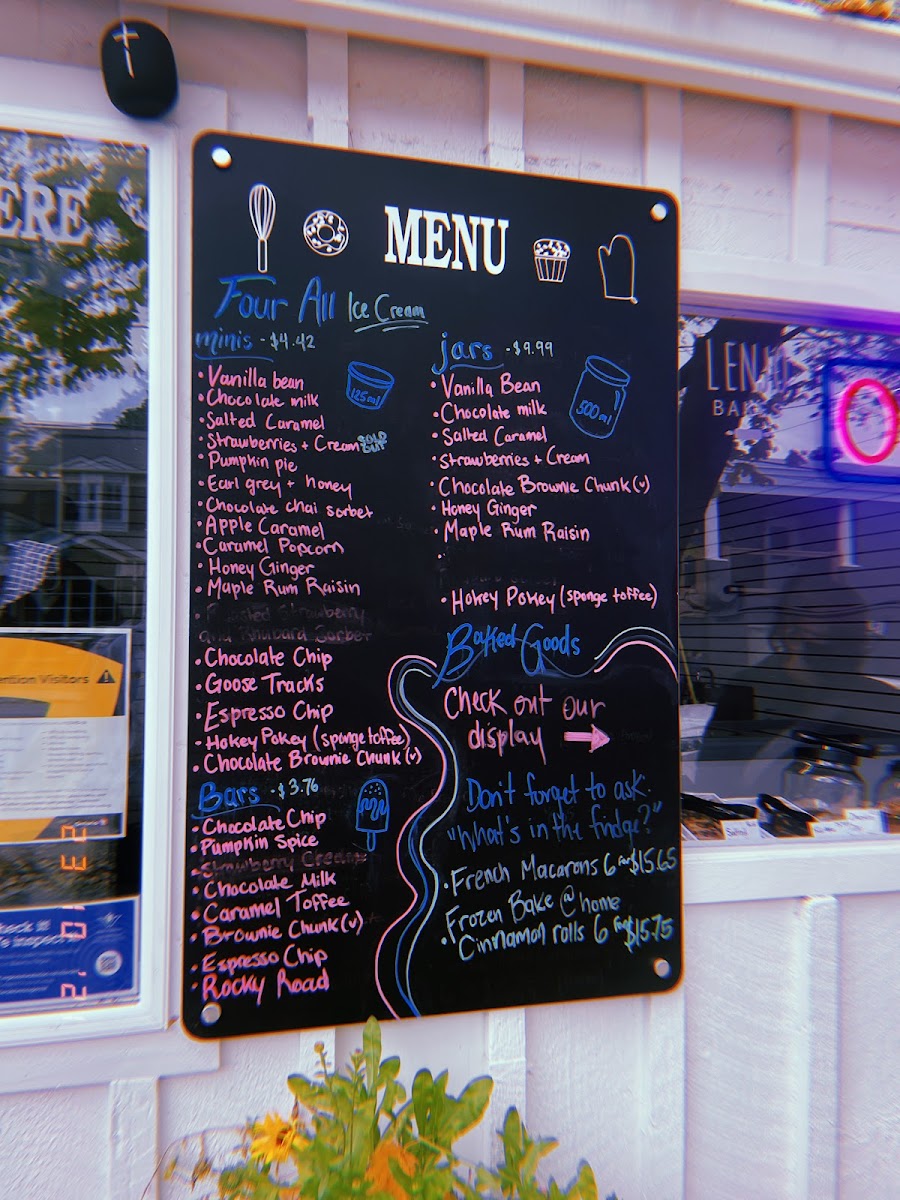 ERE
MENU
Four All Ice Cream
minis - $4.42
125ml
• Vanilla bean
• Chocolate milk
• Salted Caramel
• Strawberries + Cream SOLD OUT
• Pumpkin pie
• Earl grey + honey
• Chocolate chai sorbet
• Apple Caramel
• Caramel Popcorn
• Honey Ginger
• Maple Rum Raisin
Roasted Strawberry
and Rhubarb Sorbet
• Chocolate Chip
• Goose Tracks
• Espresso Chip
• Hokey Pokey (sponge toffee)
• Chocolate Brownie Chunk (v)
Bars - $3.76
• Chocolate Chip
• Pumpkin Spice
• Strawberry Cream
• Chocolate Milk
• Caramel Toffee
• Brownie Chunk (v)
• Espresso Chip
• Rocky Road
jars - $9.99
500ml
• Vanilla Bean
• Chocolate milk
• Salted Caramel
• Strawberries + Cream
• Chocolate Brownie Chunk (v)
• Honey Ginger
• Maple Rum Raisin
•
• Hokey Pokey (sponge toffee)
Baked Goods
Check out our
display →
Don't forget to ask:
"What's in the fridge?"
• French Macarons 6 for $15.65
Frozen Bake @ home
• Cinnamon rolls 6 for $15.75
LENJO
BAKES
O
ention Visitors
heck it!